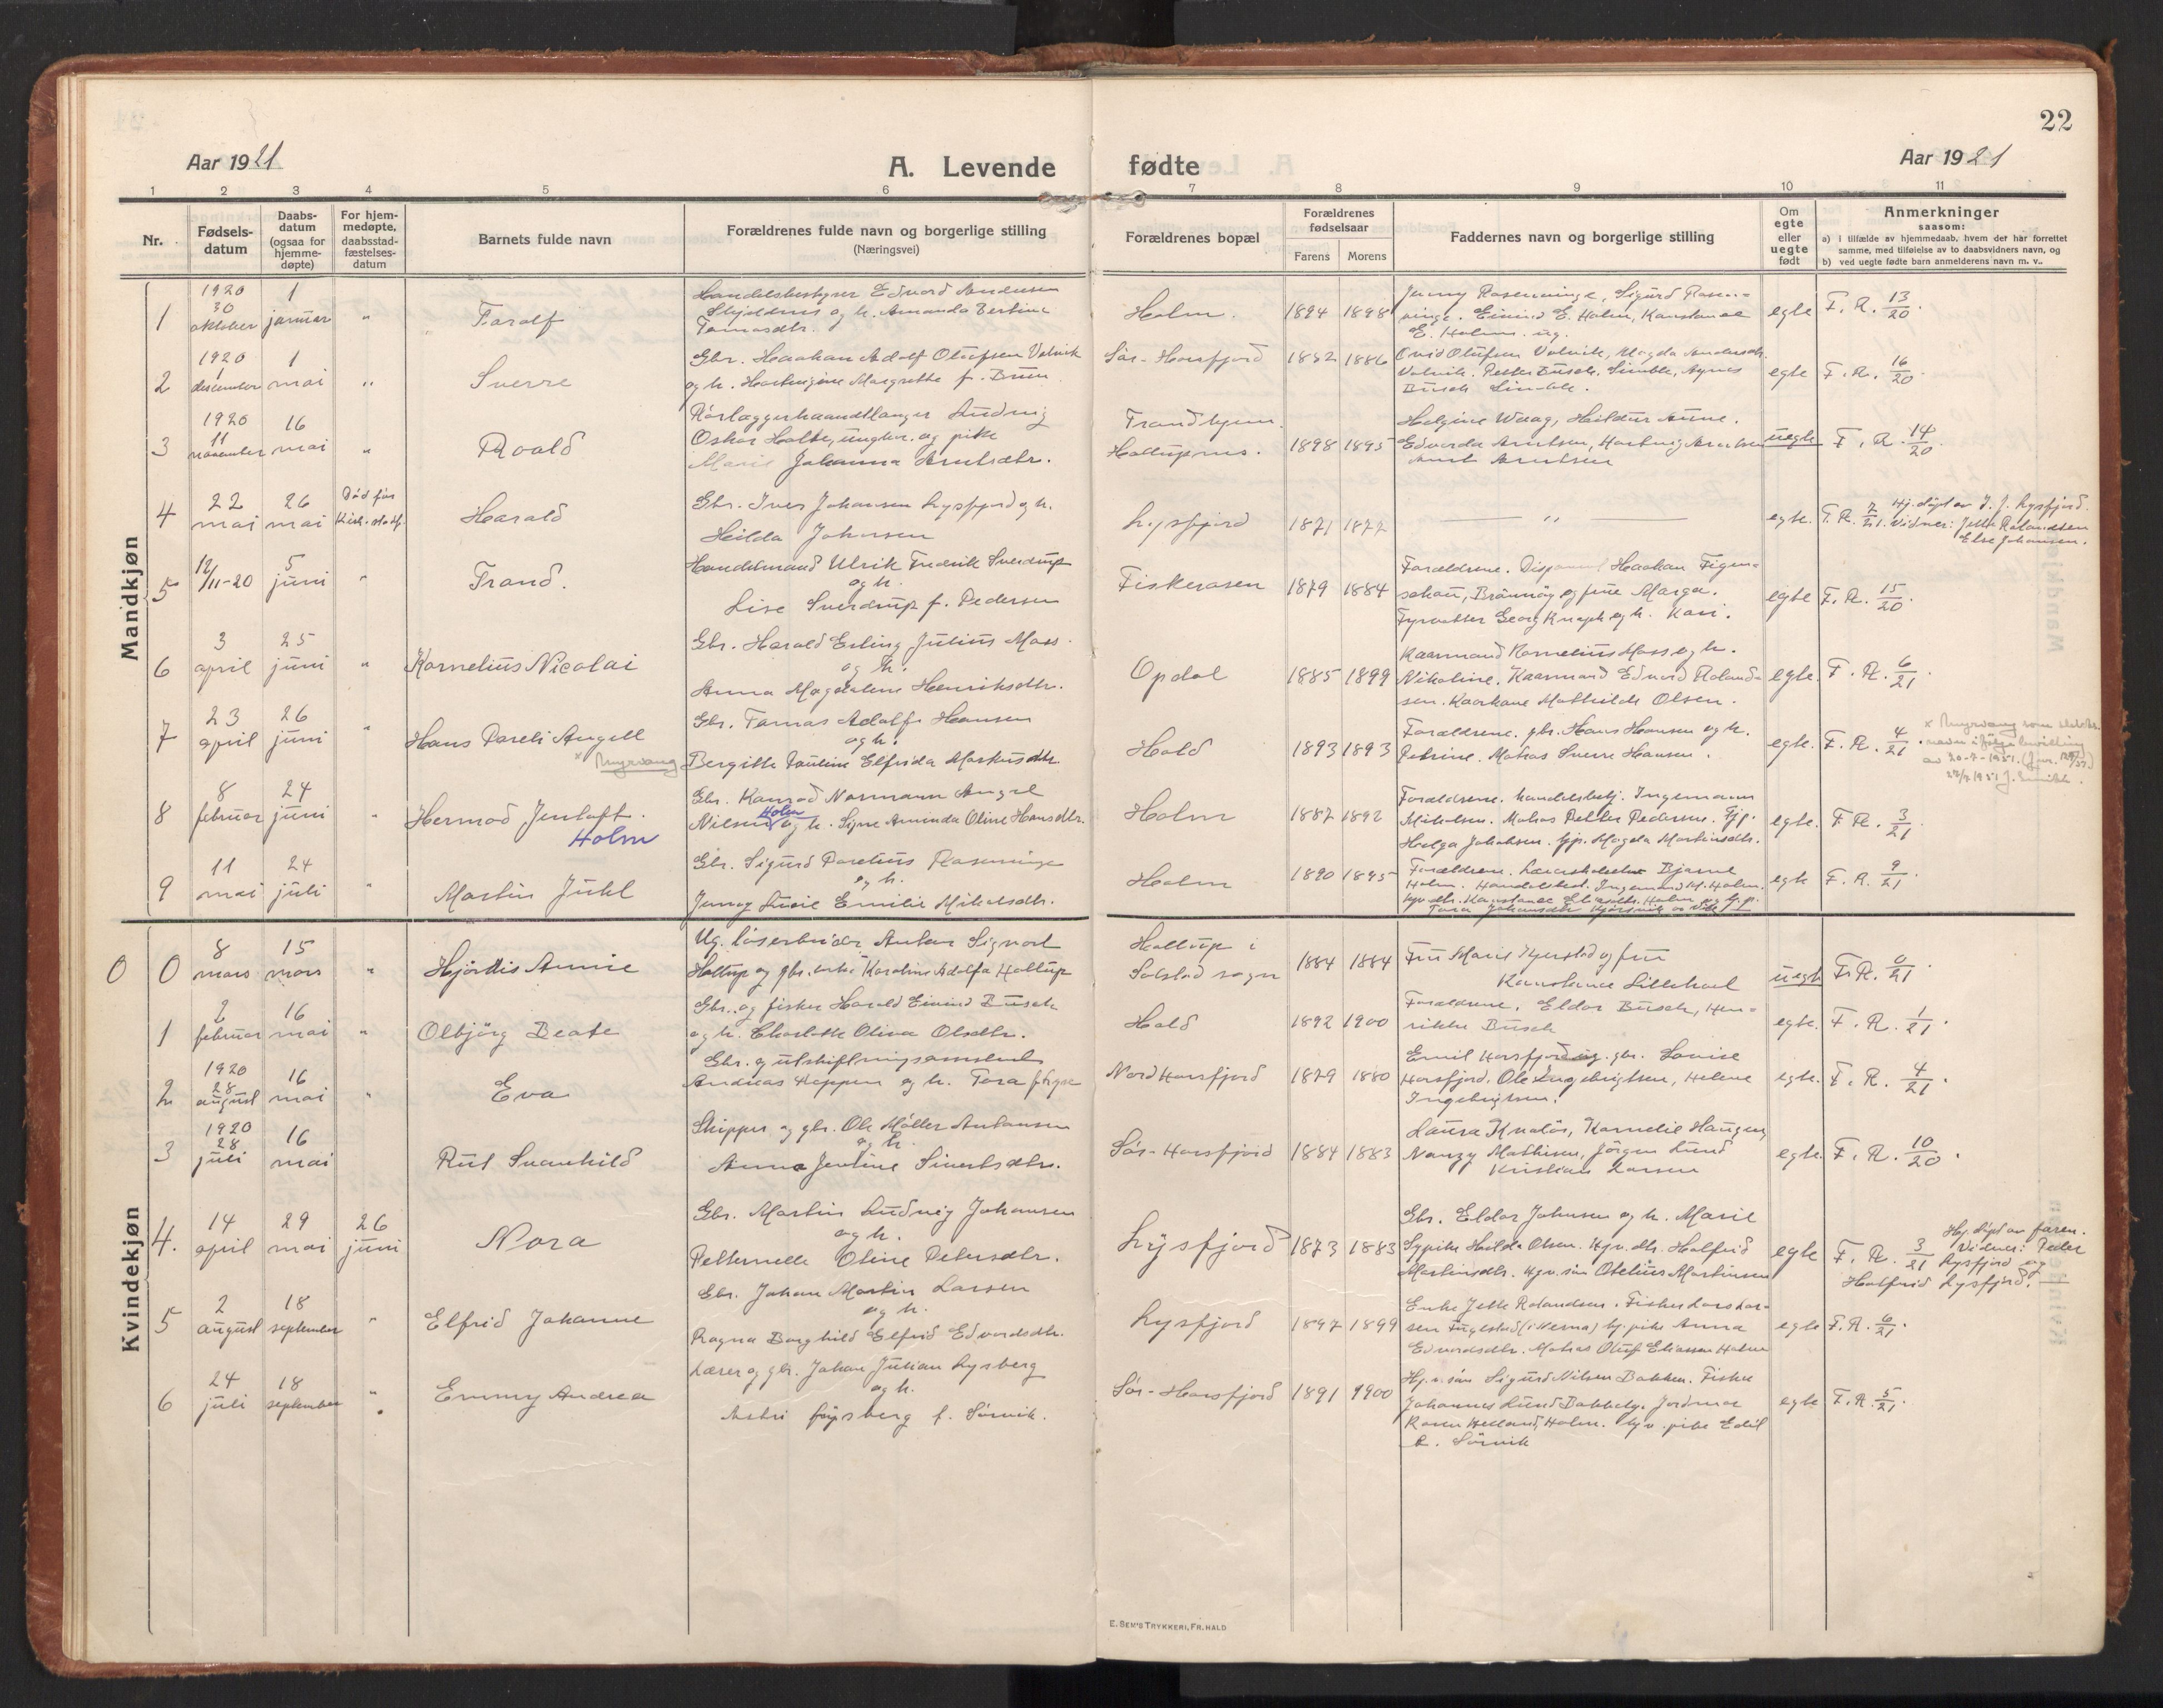 22
Aar 1921
A. Levende fødte
Aar 1921
1 2 3 4 5 6 7 8 9 10 11
Nr.
Fødsels-datum
Daabs-datum (ogsaa for hjemme-døpte)
For hjem-medøpte, daabsstad-fæstelses-datum
Barnets fulde navn
Forældrenes fulde navn og borgerlige stilling
(Næringsvei)
Forældrenes bopæl
Forældrenes fødselsaar
Farens Morens
Faddernes navn og borgerlige stilling
Om egte eller uegte født
Anmerkninger
saasom:
a) i tilfælde av hjemmedaab, hvem der har forrettet
samme, med tilføielse av to daabsvidners navn, og
b) ved uegte fødte barn anmelderens navn m. v..
Mandkjøn
1 1920 30 oktober 1 januar " Tarolf
Handelsbestyrer Edvard Andersen
og h. Amanda Bertine
Tomasdtr.
Holm. 1894 1898
Jenny Rosenvinge, Sigurd Rosen-
vinge. Eivind E. Holm, Konstanse
E. Holm. ug.
egte F. R. 13/20
2 1920 1 desember 1 mai " Sverre
Gbr. Haakon Adolf Olufsen Valvik
og h. Hartvigine Margrethe f. Brun
Sør-Horsfjord 1882 1886
Ovid Olufsen Valvik, Magda Andersdtr.
Valvik. Petter Busch, Simble, Agnes
Busch Simble.
egte F. R. 16/20
3 1920 11 november 16 mai " Roald
Rørlæggerhaandtlanger Ludvig
Oskar Holte, ungkar. og pike
Marie Johanna Arntsdtr.
Trondhjem.
Hallupnes. 1898 1895
Helgine Waag, Heildur Aune.
Edvarda Arntsen, Hartvig Arntsen
Arnt Arntsen
uegte F. R. 14/20
4 22 mai 26 mai Död før Kirk. stadf. Harald
Gbr. Iver Johansen Lysfjord og h.
Hilda Johnsen
Lysfjord 1871 1877 — " —
egte. F. R. 7/21. Hj. döpt av I. J. Lysfjord.
Vidner: Jette Rolandsen
Else Johansen.
5 12/11-20 5 juni " Trond.
Handelsmand Ulrik Fredrik Sverdrup
og h.
Lise Sverdrup f. Pedersen
Fiskerosen 1879 1884
Forældrene. Haakon Figen-
schou, Brönnöy og frue Marga.
Fyrvokter Georg Knaph og h. Kari.
egte F. R. 15/20.
6 3 april 25 juni " Kornelius Nicolai
Gbr. Harald Erling Julius Moss.
og h.
Anna Magdalene Henriksdtr.
Opdal 1885 1899
Kaarmand Kornelius Moss og h.
Nikoline. Kaarmand Edvard Roland-
sen. Kaarkone Mathilde Olsen.
egte. F. R. 6/21.
7 23 april 26 juni " Hans Pareli Angell
x Myrvang
Gbr. Tomas Adolf Hansen
og h.
Bergitte Pauline Elfrida Markusdtr.
Hald 1893 1893
Forældrene. gbr. Hans Hansen og h.
Petrine. Matros Sverre Hansen.
egte. F. R. 4/21.
x Myrvang som slekts-
navn ifølge bevilling
av 20-7-1951.
8 8 februar 24 juni " Hermod Jentoft.
Holm
Gbr. Konrad Normann Angel
Nilsen Holm og h. Signe Aminda Oline Hansdtr.
Holm 1887 1892
Forældrene. handelsbetj. Ingemann
Mikalsen. Matros Petter Pedersen. Tjp.
Helga Jakobsen. tjp. Magda Martinsdtr.
egte. F. R. 3/21.
9 11 mai 24 juli " Martin Juhl
Gbr. Sigurd Parelius Rosenvinge
og h.
Jenny Lucie Emilie Mikalsdtr.
Holm 1890 1895
Forældrene. Bjarne
Holm. Handelsbest. Ingemand M. Holm.
egte F. R. 9/21.
Kvindekjøn
0 0 8 mars 15 mars " Hjördis Annie
Ug. løsarbeider Anton Sigvart
Hallup og gbr. enke Karoline Adolfa Hallup
Hallup i
Solstad sogn 1884 1884
Fru Marie og fru
Konstance Lillehval
uegte F. R. 0/21.
1 2 februar 16 mai " Olbjörg Beate
Gbr. og fisker Harald Eivind Busch
og h. Charlotte Oliva Olsdtr.
Hald 1892 1900
Forældrene. Eldor Busch, Hen-
rikke Busch
egte. F. R. 1/21.
2 1920 28 august 16 mai " Eva
Gbr. og utskiftningsassistent
Andreas Heppen og h. Tora
Nord Horsfjord 1879 1880
Emil Horsfjord ug. gbr. Lovise
Horsfjord. Ole Ingebrigtsen, Helene
Ingebrigtsen.
egte. F. R. 4/21.
3 1920 28 juli 16 mai Rut Svanhild
Skipper og gbr. Ole Möller Antonsen
og h.
Anna Jentine Sivertsdtr.
Sør-Horsfjord 1884 1883
Laura Knalös, Kornelie Haugen
Nanzy Mathisen, Jörgen Lund
Kristian Larsen
egte. F. R. 10/20.
4. 14 april 29 mai 26 juni Nora
Gbr. Martin Ludvig Johansen
og h.
Petternelle Oline Petersdtr.
Lysfjord 1873 1883
Gbr. Eldor Johnsen og h. Marie
Sypike Hilda Olsen. Hjv. dtr. Halfrid
Martinsdtr. Hjv. sön Otelius Martinsen
egte F. R. 3/21
Hj. döpt av faren.
Vidner: Peder
Lysfjord og
Halfrid Lysfjord.
5 2 august 18 september " Elfrid Johanne
Gbr. Johan Martin Larsen
og h.
Ragna Borghild Elfrid Edvardsdtr.
Lysfjord 1897 1899
Enke Jette Rolandsen. Fisker Lars Lar-
sen Fuglestad hj. pike Anna
Edvardsdtr. Matros Oluf Eliassen Holm
egte F. R. 6/21.
6 24 juli 18 september " Emmy Andrea
Lærer og gbr. Johan Julian Lysberg
og h.
Astri Lysberg f. Sörvik.
Sör-Horsfjord 1891 1900
Hj. v. sön Sigurd Nilsen Bakken. Fisker
Johannes Lund Bakken. Jordmor
Karen Helland, Holm. Hjv. pike Edil
Sörvik
egte F. R. 5/21.
E. SEM'S TRYKKERI, FR. HALD